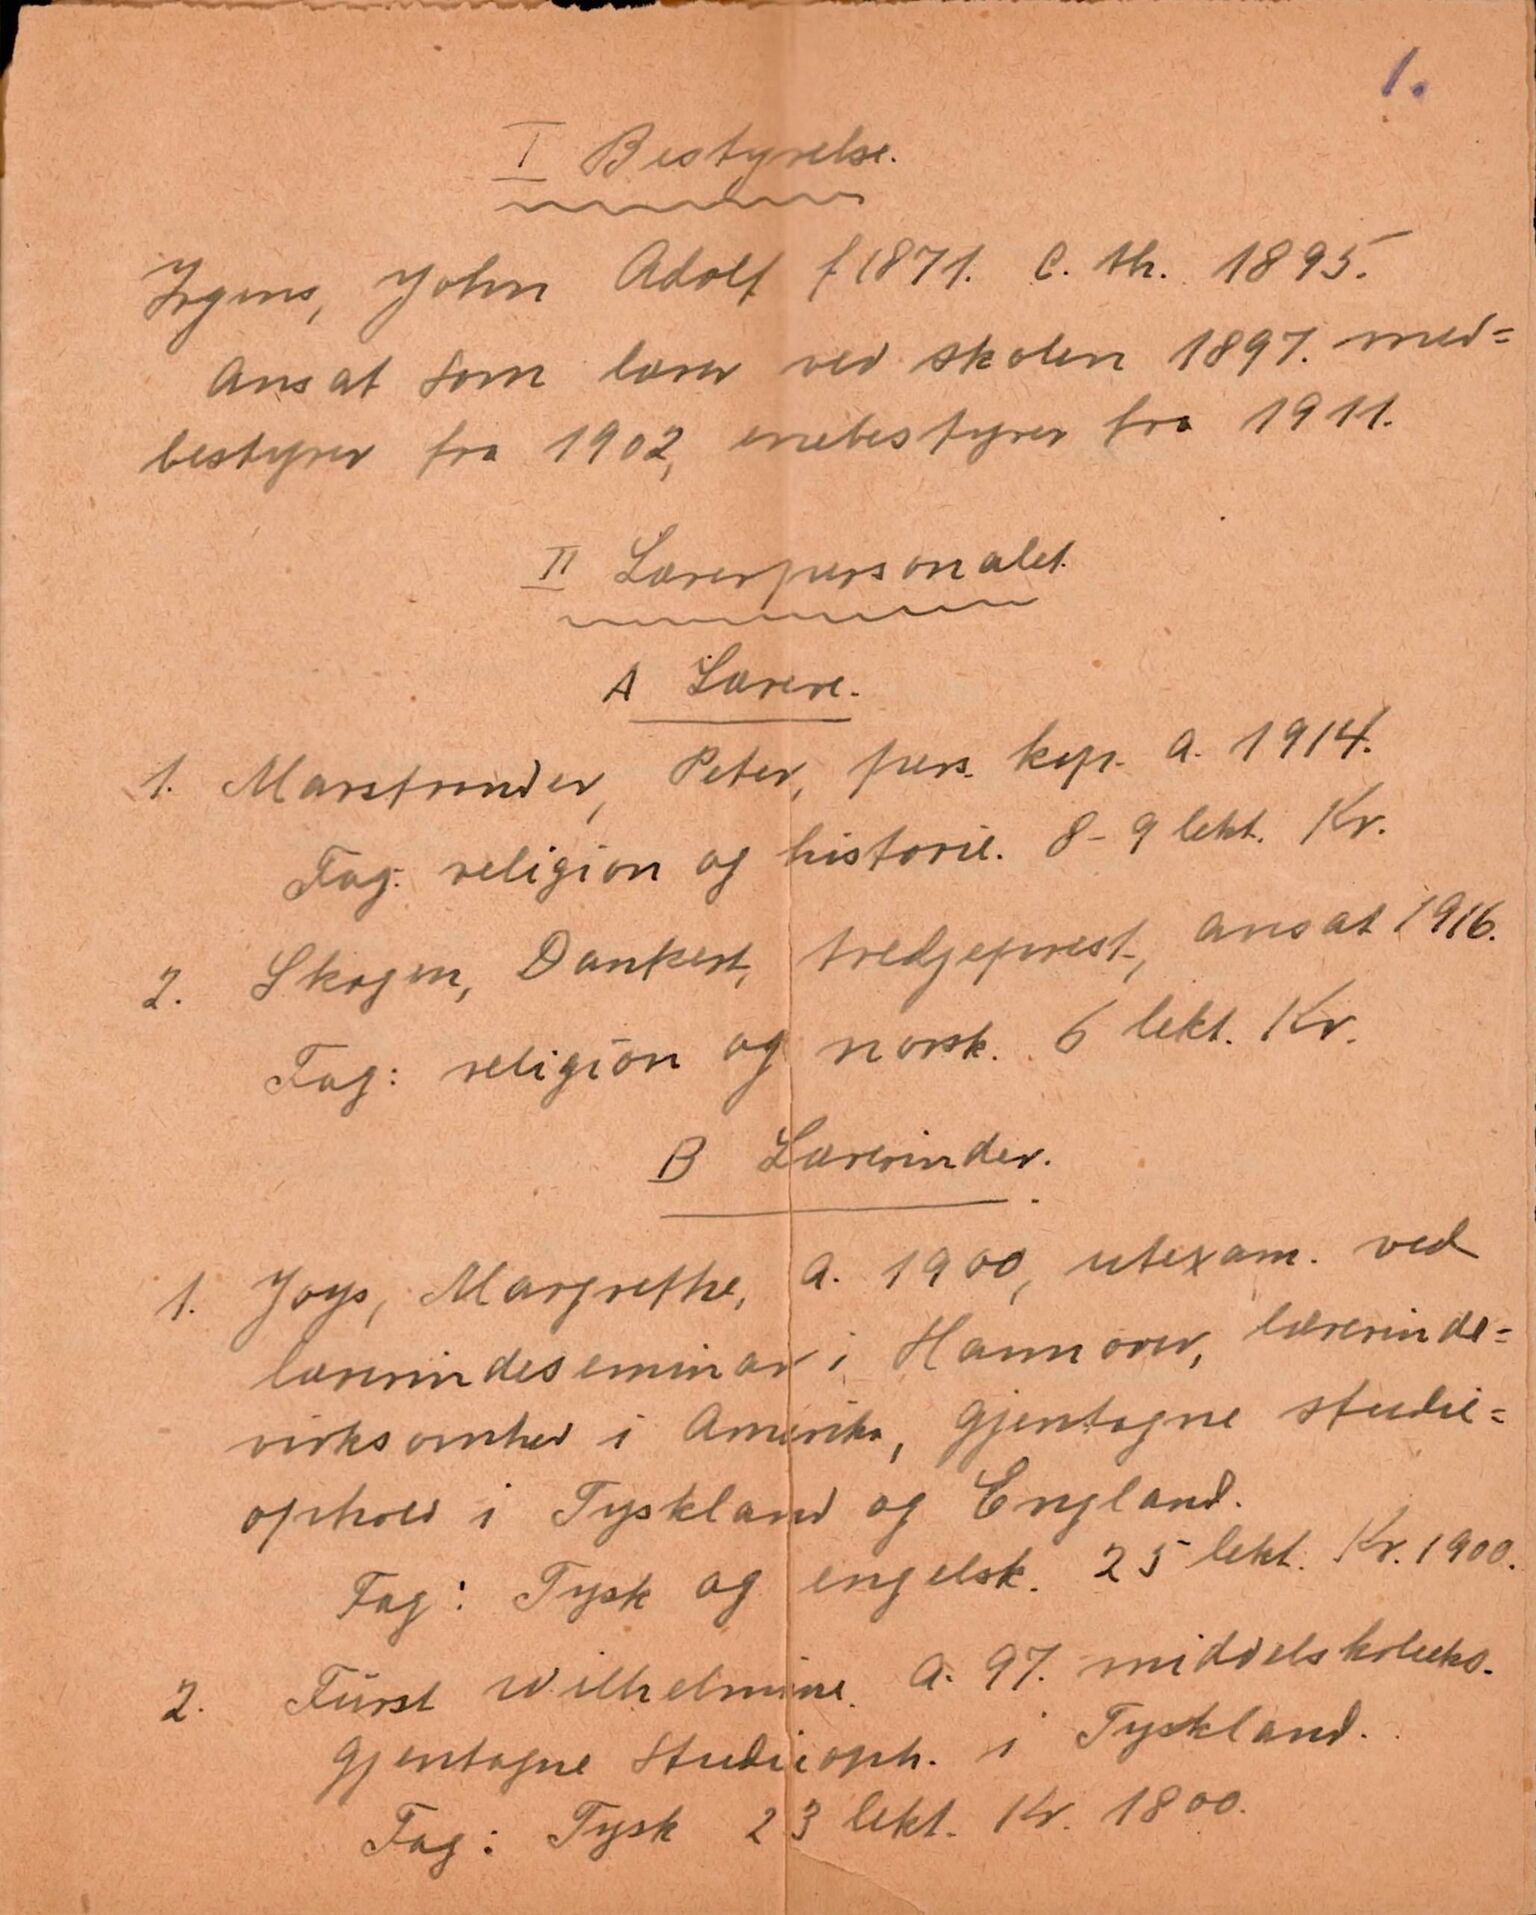 1.
I Bestyrelse.
Irgens, John Adolf f 1871. C. th. 1895.
Ansat som lærer ved skolen 1897. med=
bestyrer fra 1902, enebestyrer fra 1911.
II Lærerpersonalet.
A Lærere.
1. Marstrander, Peter, pers. kap. a. 1914.
Fag: religion og historie. 8-9 lekt. Kr.
2. Skagen, Dankert, tredjeprest, ansat 1916.
Fag: religion og norsk. 6 lekt. Kr.
B Lærerinder.
1. Joys, Margrethe, a. 1900, utexam. ved
lærerindeseminar i Hannover, lærerinde=
virksomhed i Amerika, gjentagne studie=
ophold i Tyskland og England.
Fag: Tysk og engelsk. 25 lekt. Kr. 1900.
2. Fürst Wilhelmine. a. 97. middelskoleeks.
gjentagne Studieoph. i Tyskland.
Fag: Tysk 23 lekt. Kr. 1800.